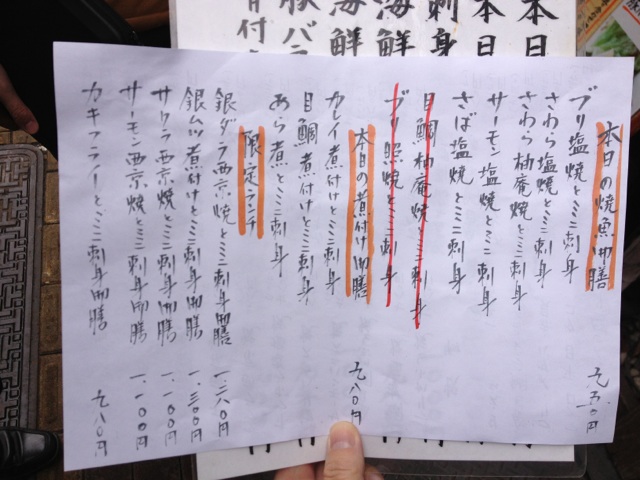 本日の焼魚御膳
ブリ塩焼とミニ刺身
さわら塩焼とミニ刺身
さわら柚庵焼とミニ刺身
サーモン塩焼とミニ刺身
さば塩焼とミニ刺身
目鯛柚庵焼とミニ刺身
ブリ照焼とミニ刺身
本日の煮付け御膳
カレイ煮付けとミニ刺身
目鯛煮付けとミニ刺身
あら煮とミニ刺身
限定ランチ
銀ダラ西京焼とミニ刺身御膳 一、三八〇円
銀ムツ煮付けとミニ刺身御膳 一、三〇〇円
サワラ西京焼とミニ刺身御膳 一、一〇〇円
サーモン西京焼とミニ刺身御膳 一、一〇〇円
カキフライとミニ刺身御膳
本日
本日
刺身
海鮮
海鮮
豚バラ